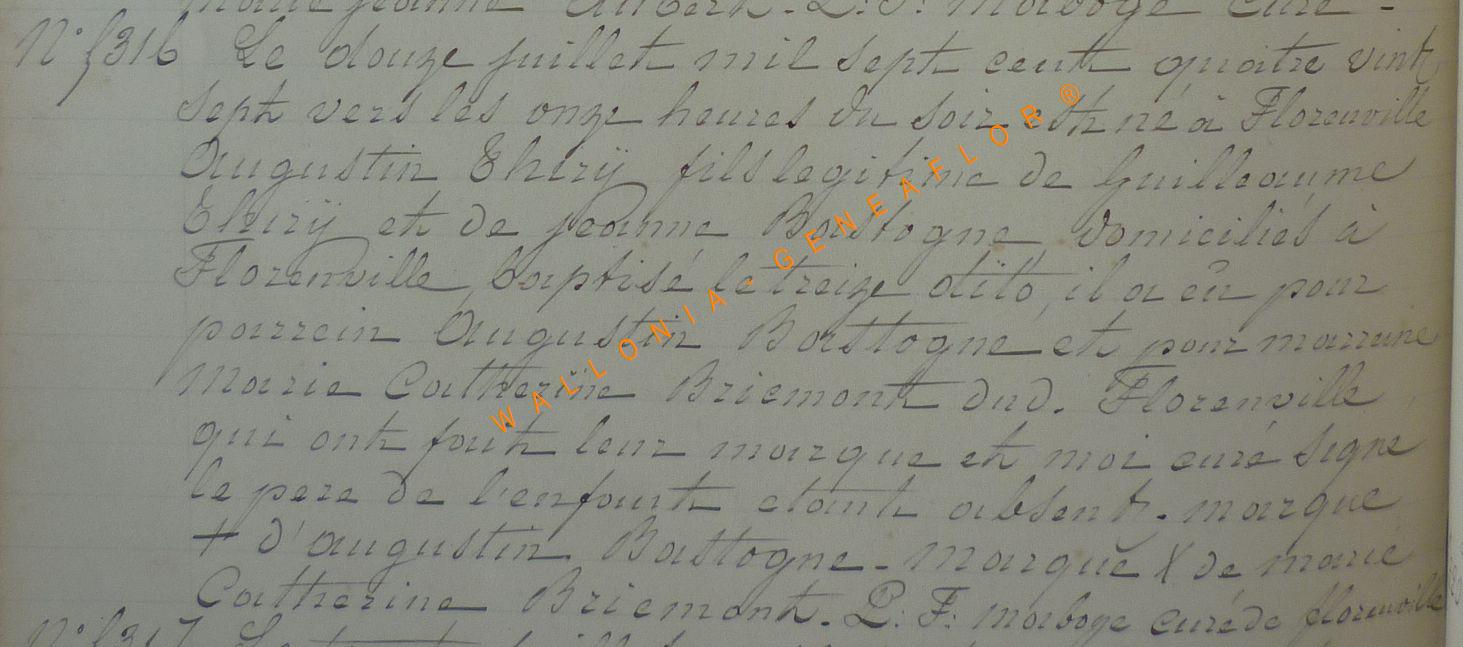 marie jeanne aubert. P: F: maboge curé -
N° 1316 Le douze juillet mil sept cent quatre vint
sept vers les onze heures du soir est né à Florenville
Augustin Thirÿ fils legitime de Guilleaume
Thirÿ et de jeanne Bastogne domiciliés à
Florenville, baptisé le treize ditto, il a eû pour
parrein Augustin Bastogne et pour marraine
marie Catherine Briemont dud. Florenville
qui ont fait leur marque et moi curé signe
le pere de l'enfant etant absent. marque
+ d'augustin Bastogne - marque X de marie
Catherine Briemont. P: F: maboge curé de florenville
N° 1317 Le
WALLONIA - GENEAFLOR ®